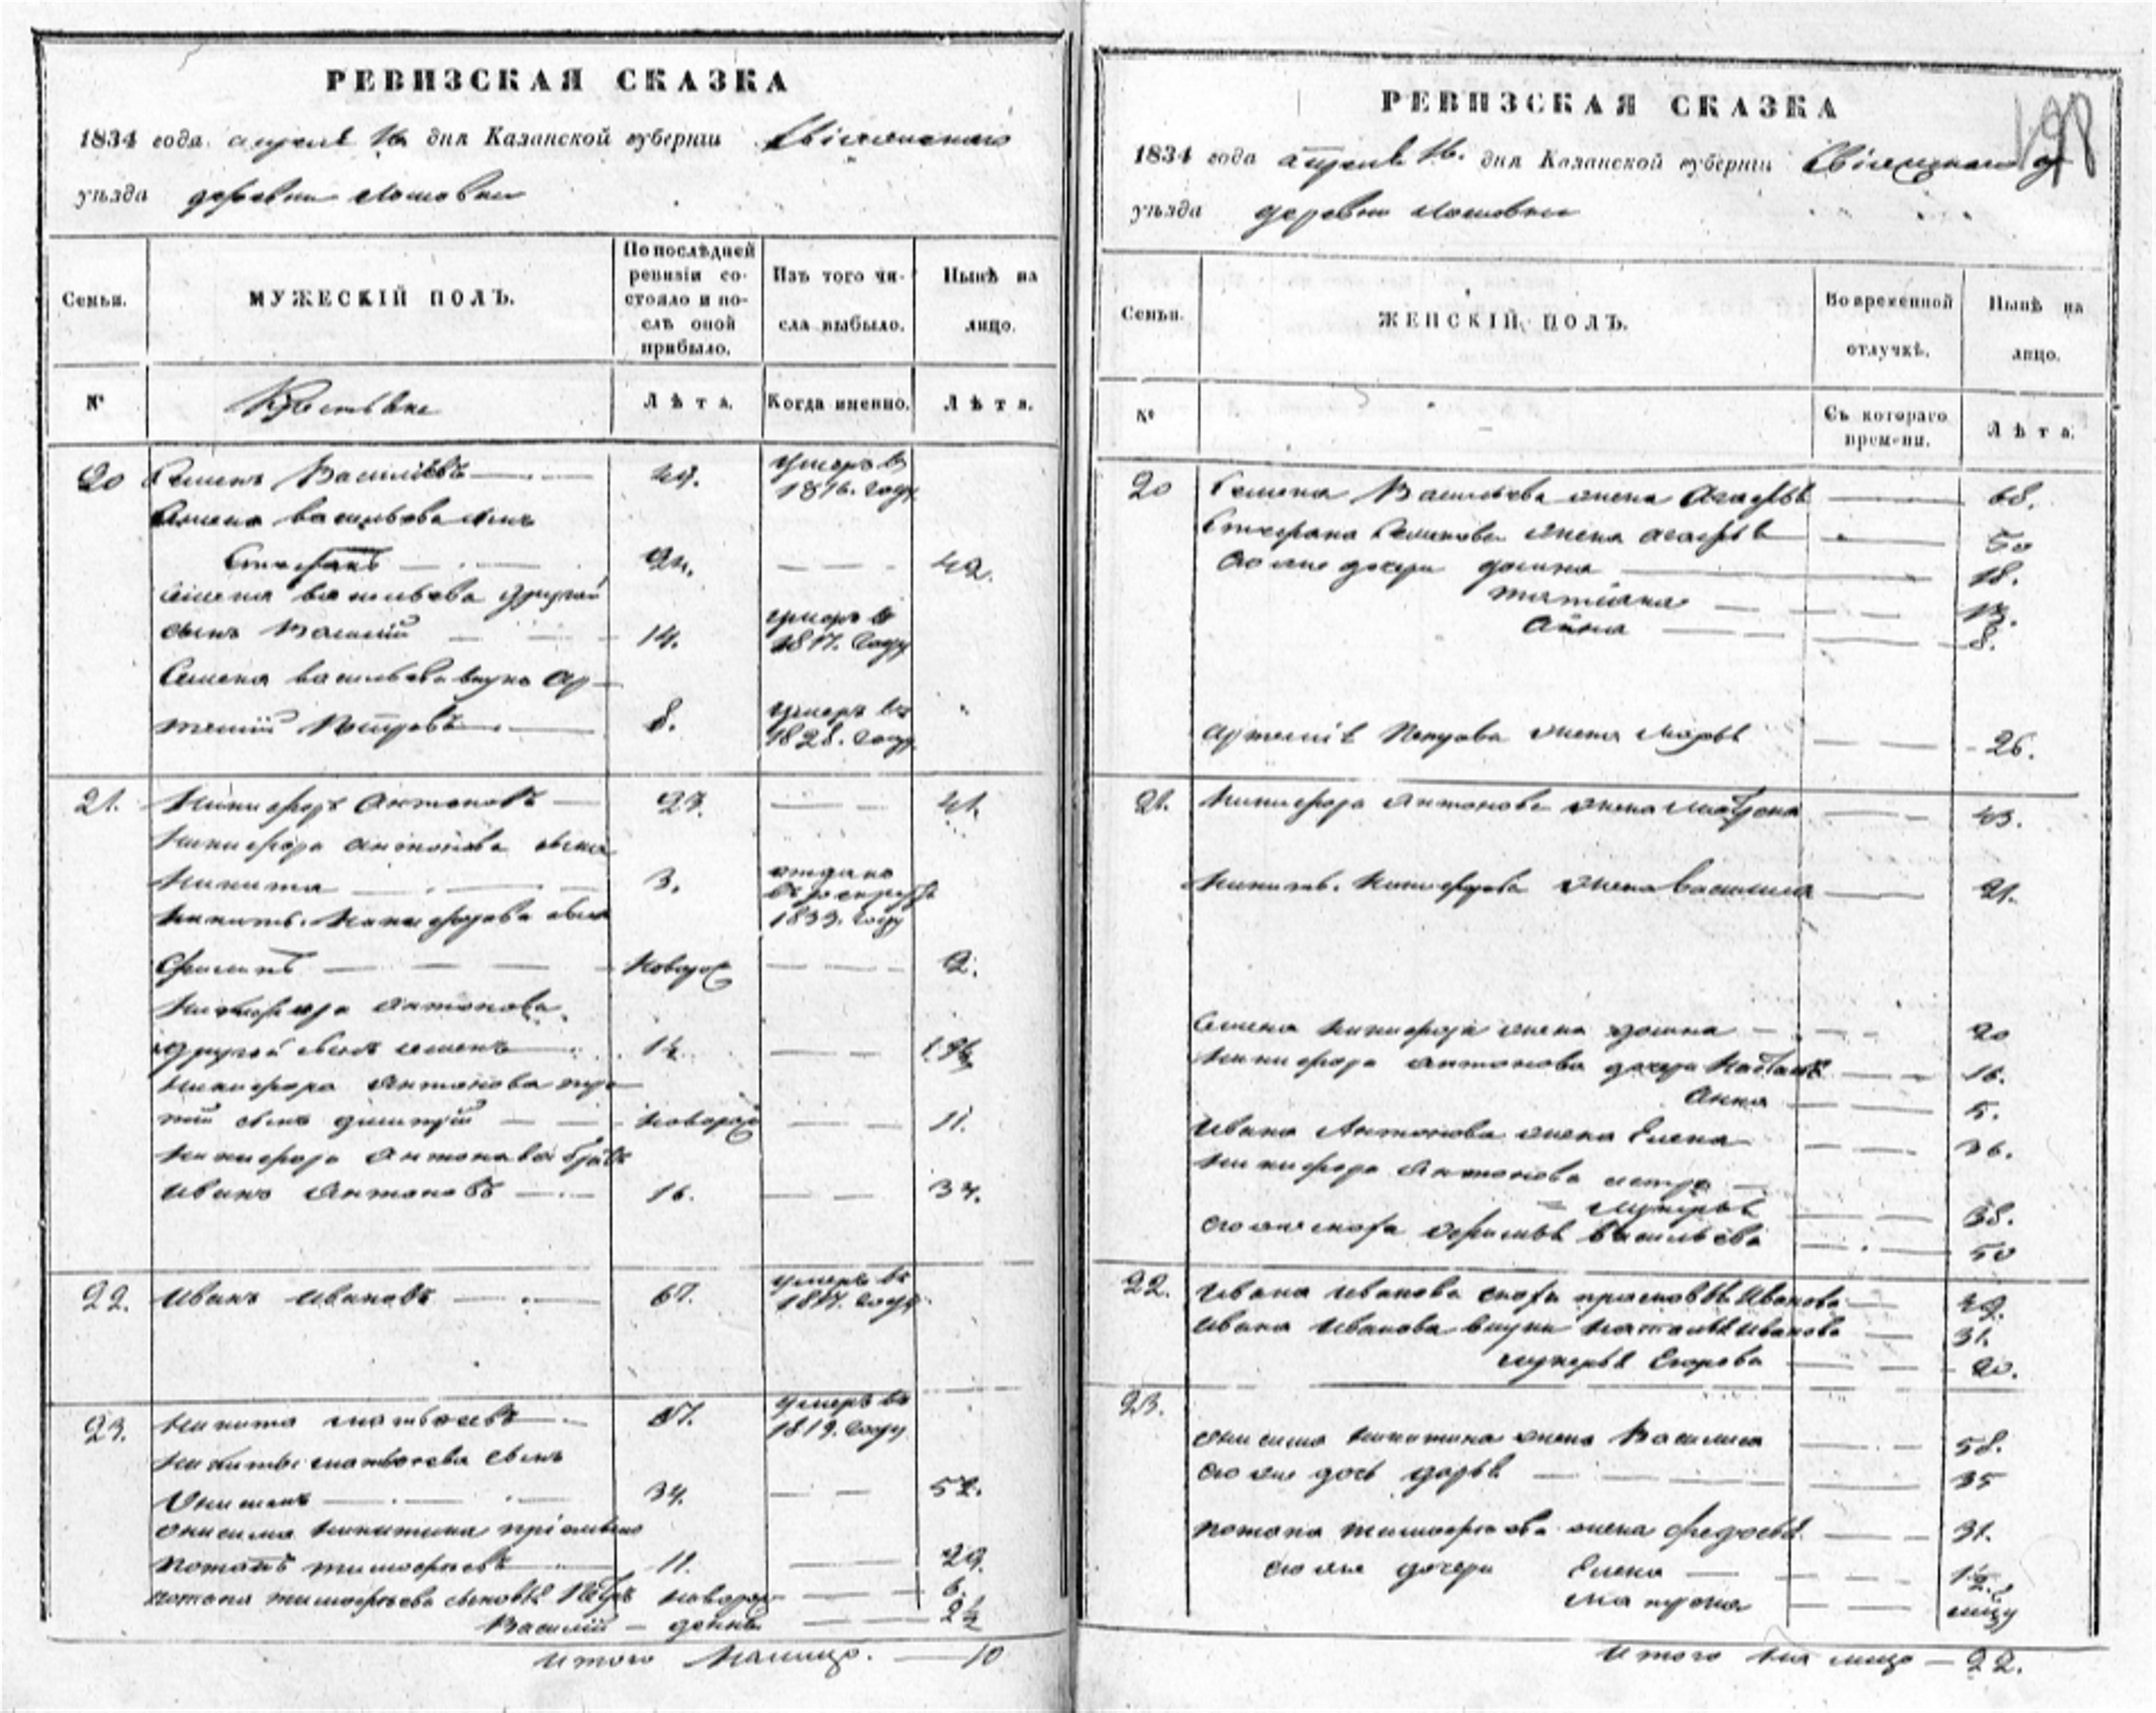 РЕВИЗСКАЯ СКАЗКА
1834 года апреля 16 дня Казанской губернии Свіяжскаго
уѣзда деревни
Семьи.
МУЖЕСКІЙ ПОЛЪ.
По послѣдней ревизіи состояло и послѣ оной прибыло.
Изъ того числа выбыло.
Нынѣ на лицо.
№
Лѣта.
Когда именно.
Лѣта.
20 Семенъ Васильевъ 49. умеръ в 1816. году
Семена Васильева сынъ
Степанъ 24. 42.
Семена Васильева другой
сынъ Василий 14. умеръ в 1817. году
Семена Васильева внукъ Ар-
темий Петровъ 8. умеръ въ 1828. году
21. Никифоръ Антоновъ 23. 41.
Никифора Антонова сынъ
Никита 3. отданъ въ рекруты 1833. году
Никиты Никифорова сынъ
Филипъ новорож 2.
Никифора Антонова
другой сынъ Семенъ 1½ 19½
Никифора Антонова тре-
тий сынъ Димитрий новорож 11.
Никифора Антонова братъ
Иванъ Антоновъ 16. 34.
22. Иванъ Ивановъ 67. умеръ въ 1817. году
23. Никита Матвеевъ 67. умеръ въ 1819. году
Никиты Матвеева сынъ
Онисимъ 34. 52.
Онисима Никитина приемышъ
Потапъ Тимофеевъ 11. 29.
Потапа Тимофеева сыновья Петръ новорож 6.
Василий денны 2½
Итого налицо. 10
РЕВИЗСКАЯ СКАЗКА
1834 года апреля 16. дня Казанской губерніи Свіяжскаго
уѣзда деревни
Семьи.
ЖЕНСКІЙ ПОЛЪ.
Во временной отлучкѣ.
Нынѣ на лицо.
№
Съ котораго времени.
Лѣта.
20 Семена Васильева жена Агафья 68.
Степана Семенова жена Агафья 50
Его же дочери Домна 18.
Татиана 13.
Анна 8.
Артемия Петрова жена Марья 26.
21. Никифора Антонова жена Матрона 43.
Никиты Никифорова жена Василиса 21.
Семена Никифора жена Домна 20
Никифора Антонова дочери Настасья 16.
Анна 5.
Ивана Антонова жена Елена 36.
Никифора Антонова сестра
Лукерья 38.
Его же сноха Васильева 50
22. Ивана Иванова сноха Прасковья Иванова 49.
Ивана Иванова внуки Наталья Иванова 31.
Лукерья Егорова 20.
23.
Онисима Никитина жена Василиса 58.
Его же дочь Дарья 35
Потапа Тимофеева жена Федосья 31.
Его же дочери Елена
Матрона
Итого на лицо 22.